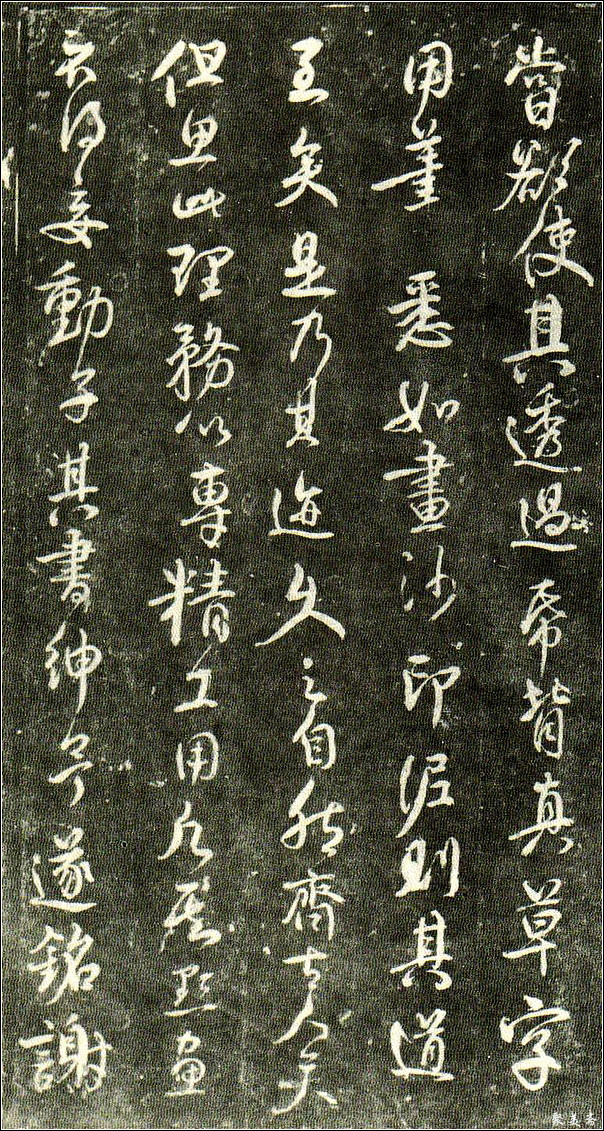 當欲使其透過帋背真草字
用筆悉如畫沙印泥則其道
至矣是乃其迹久之自然齊古人矣
但思此理務以專精工用乃其點畫
不得妄動子其書紳予遂銘謝
聚美斋